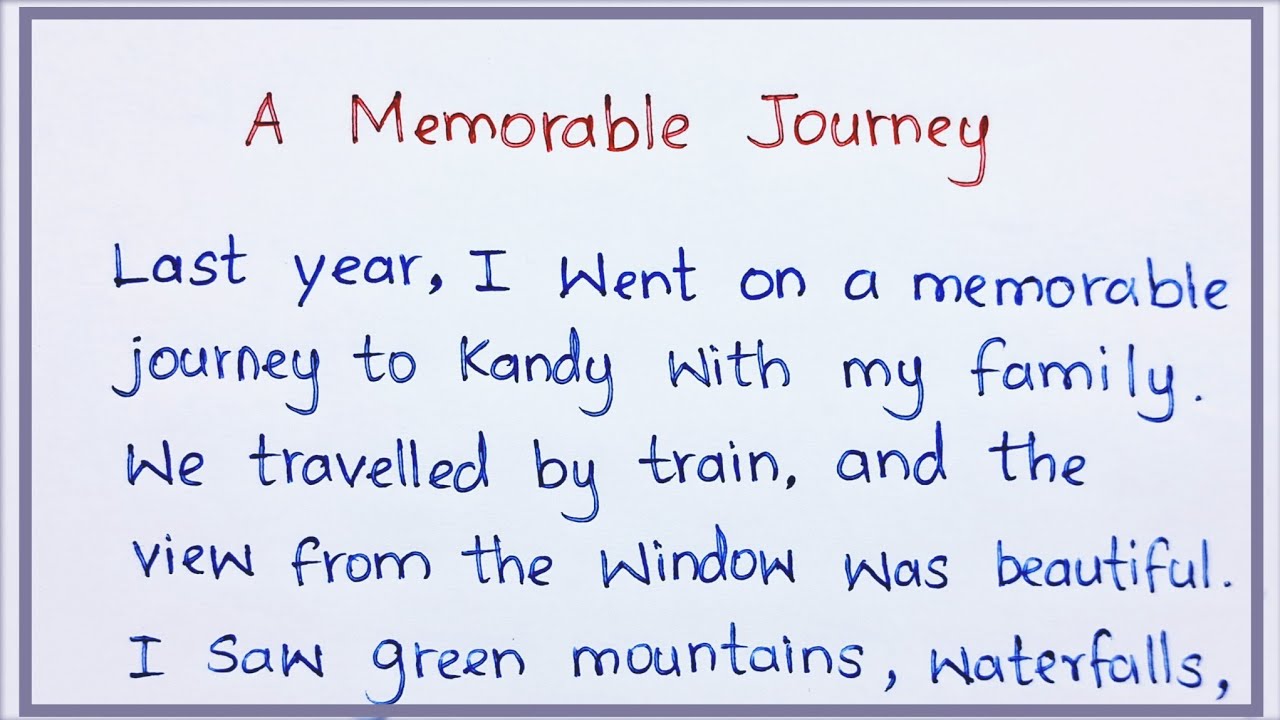 A Memorable Journey
Last year, I went on a memorable
journey to Kandy with my family.
We travelled by train, and the
view from the window was beautiful.
I saw green mountains, waterfalls,